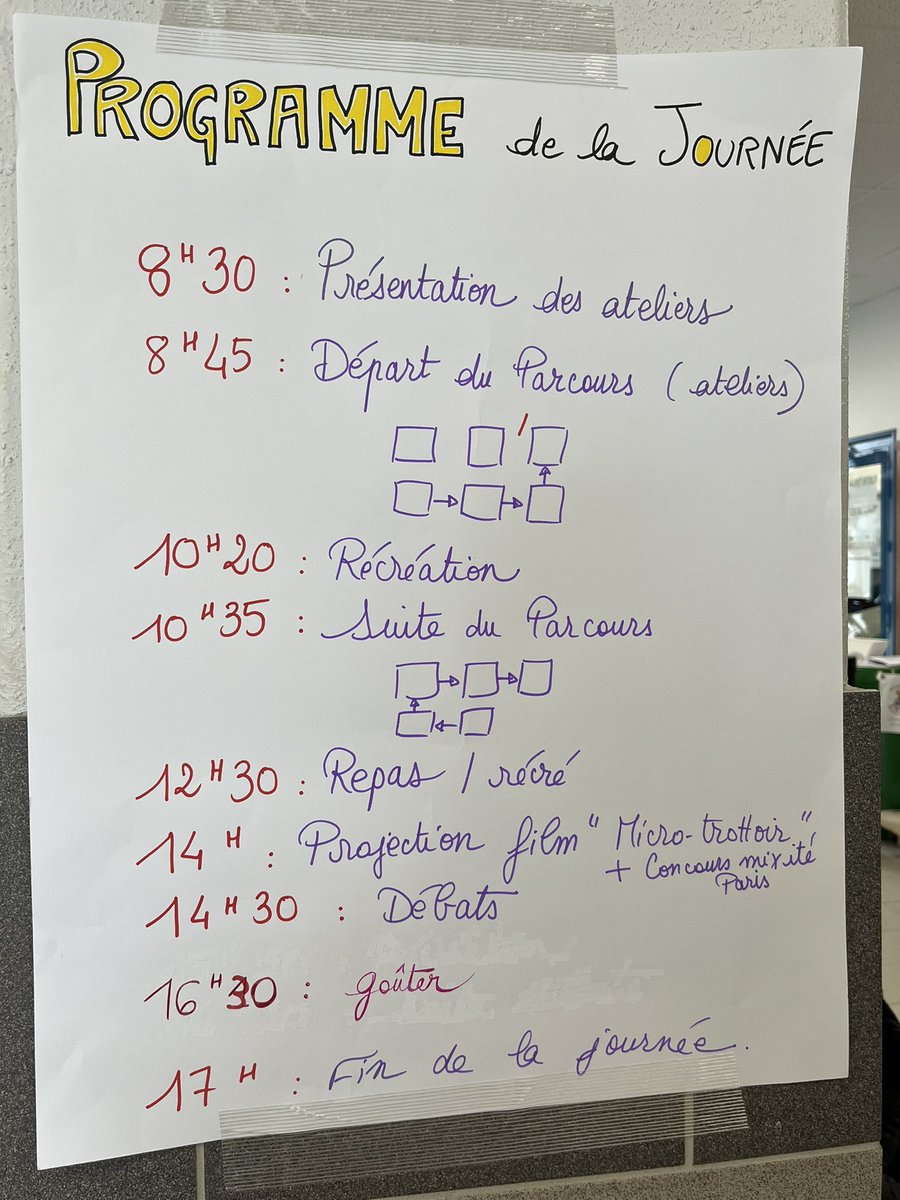 PROGRAMME de la JOURNÉE
8H30 : Présentation des ateliers
8H45 : Départ du Parcours (ateliers)
10H20 : Récréation
10H35 : Suite du Parcours
12H30 : Repas / récré
14H : Projection film "Micro-trottoir"
+ Concours mixité
Paris
14H30 : Débats
16H30 : goûter
17H : Fin de la journée.